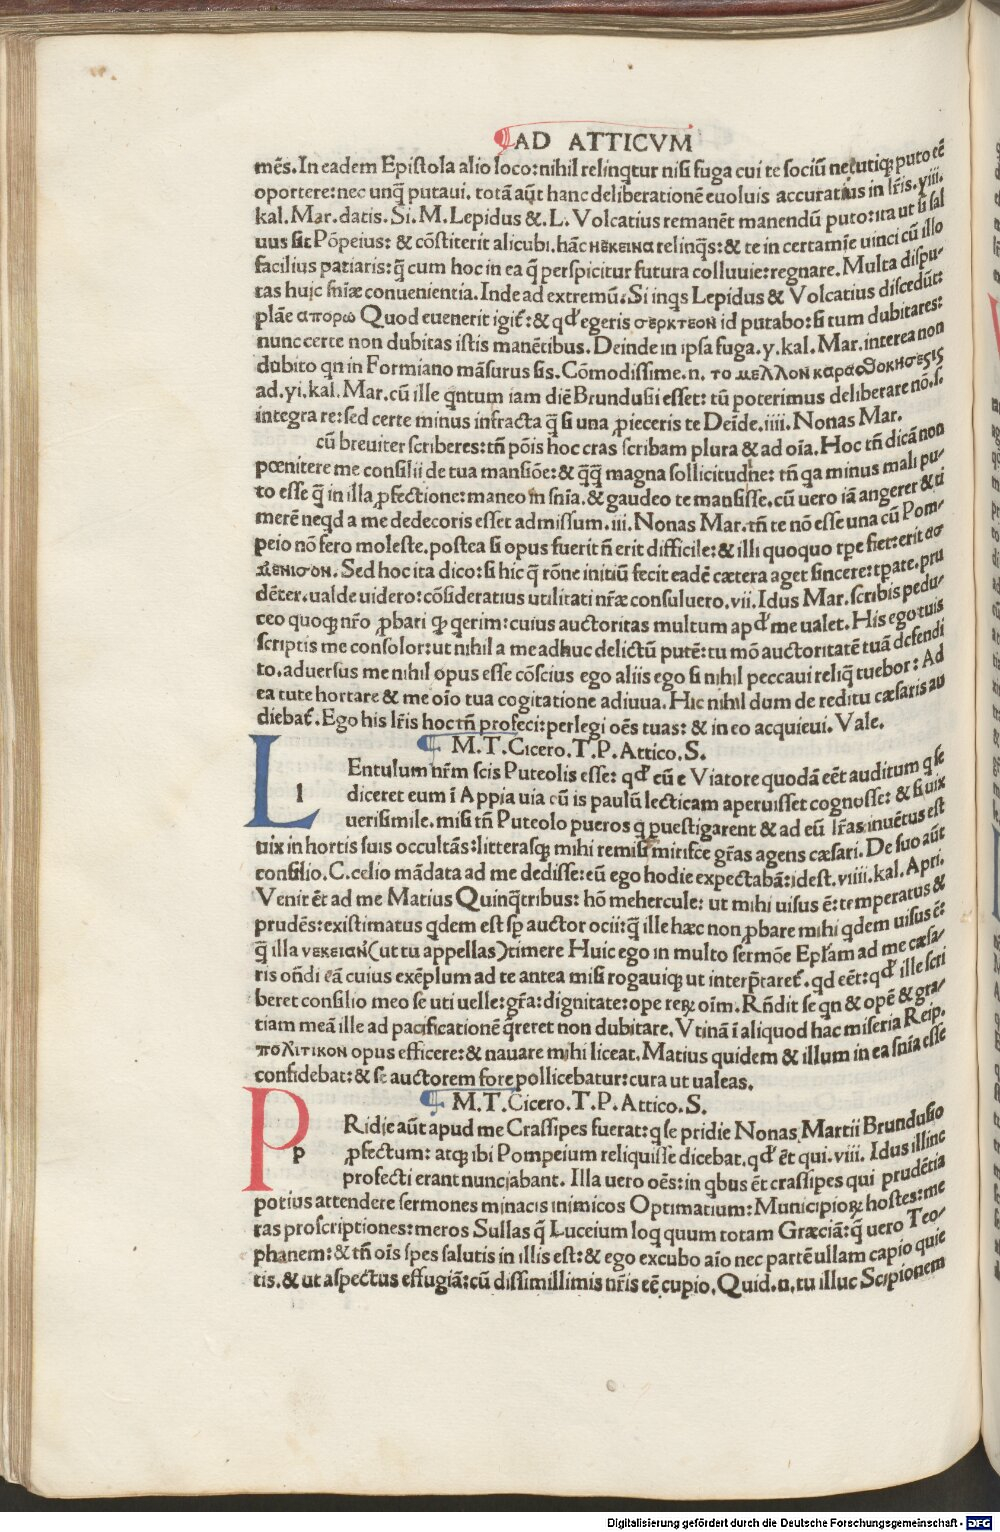 AD ATTICVM
mēs. In eadem Epistola alio loco: nihil relinqtur nisi fuga cui te sociū neutiqꝫ puto eē
oportere: nec unq̄ putaui. totā aūt hanc deliberationē euoluis accuratius in lr̄is. yiii.
kal. Mar. datis. Si. M. Lepidus &. L. Volcatius remanēt manendū puto: ita ut si sal
uus sit Pōpeius: & cōstiterit alicubi. hāc ΝΕΚΕΙΝΑ relinq̄s: & te in certamīe uinci cū illo
facilius patiaris: q̄ cum hoc in ea q̄ perspicitur futura colluuie: regnare. Multa dispu/
tas huic sniæ conuenientia. Inde ad extremū. Si inqs Lepidus & Volcatius discedūt:
plāe απορω Quod euenerit igit̄: & qđ egeris σερκτεον id putabo: si tum dubitares:
nunc certe non dubitas istis manētibus. Deinde in ipsa fuga. y. kal. Mar. interea non
dubito qn in Formiano māsurus sis. Cōmodissime. n. το μελλον καραθοκησεξις
ad. yi. kal. Mar. cū ille q̄ntum iam diē Brundusii esset: tū poterimus deliberare nō. s.
integra re: sed certe minus infracta q̄ si una ꝓieceris te Deīde. iiii. Nonas Mar.
cū breuiter scriberes: tn̄ pōis hoc cras scribam plura & ad oīa. Hoc tn̄ dicā non
pœnitere me consilii de tua mansiōe: & q̄q̄ magna sollicitudne: tn̄ qa minus mali pu/
to esse q̄ in illa ꝓfectione: maneo in snīa. & gaudeo te mansisse. cū uero iā angerer & ti
merē neqd a me dedecoris esset admissum. iii. Nonas Mar. tn̄ te nō esse una cū Pom/
peio nō fero moleste. postea si opus fuerit n̄ erit difficile: & illi quoquo tꝑe fiet: erit ασ
μενισον. Sed hoc ita dico: si hic q̄ rōne initiū fecit eadē cætera aget sincere: tꝑate. pru
dēter. ualde uidero: cōsideratius utilitati nr̄æ consuluero. vii. Idus Mar. scribis pedu/
ceo quoqꝫ nr̄o ꝓbari qꝫ qerim: cuius auctoritas multum apđ me ualet. His ego tuis
scriptis me consolor: ut nihil a me adhuc delictū putē: tu mō auctoritatē tuā defendi
to. aduersus me nihil opus esse cōscius ego aliis ego si nihil peccaui reliq̄ tuebor: Ad
ea tute hortare & me oīo tua cogitatione adiuua. Hic nihil dum de reditu cæsaris au
diebat̄. Ego his lr̄is hoc tn̄ profeci: perlegi oēs tuas: & in eo acquieui. Vale.
M. T. Cicero. T. P. Attico. S.
LEntulum nr̄m scis Puteolis esse: qđ cū e Viatore quodā eēt auditum q se
l diceret eum ī Appia uia cū is paulū lecticam aperuisset cognosse: & si uix
uerisimile. misi tn̄ Puteolo pueros q puestigarent & ad eū lr̄as inuētus est
uix in hortis suis occultās: litterasqꝫ mihi remisit mirifce gr̄as agens cæsari. De suo aūt
consilio. C. celio mādata ad me dedisse: eū ego hodie expectabā: idest. viiii. kal. Apri.
Venit ēt ad me Matius Quinq̄tribus: hō mehercule: ut mihi uisus ē: temperatus &
prudēs: existimatus qdem est sp̄ auctor ocii: q̄ ille hæc non ꝓbare mihi qdem uisus ē:
q̄ illa νεκειαν (ut tu appellas) timere Huic ego in multo sermōe Epl̄am ad me cæsa/
ris on̄di eā cuius exēplum ad te antea misi rogauiqꝫ ut interp̄taret̄. qd eēt: qđ ille scri
beret consilio meo se uti uelle: gr̄a: dignitate: ope reꝝ oīm. Rn̄dit se qn & opē & gra/
tiam meā ille ad pacificationē q̄reret non dubitare. Vtinā ī aliquod hac miseria Reip.
πολιτικον opus efficere: & nauare mihi liceat. Matius quidem & illum in ea snīa esse
confidebat: & se auctorem fore pollicebatur: cura ut ualeas.
M. T. Cicero. T. P. Attico. S.
PRidie aūt apud me Crassipes fuerat: q se pridie Nonas Martii Brundusio
p ꝓfectum: atqꝫ ibi Pompeium reliquisse dicebat. qđ ēt qui. viii. Idus illinc
profecti erant nunciabant. Illa uero oēs: in qbus ēt crassipes qui prudētia
potius attendere sermones minacis inimicos Optimatium: Municipioꝝ hostes: me
ras proscriptiones: meros Sullas q̄ Luceium loq quum totam Græciā: q̄ uero Teo/
phanem: & tn̄ oīs spes salutis in illis est: & ego excubo aīo nec partē ullam capio quie
tis. & ut aspectus effugiā: cū dissimillimis nr̄is eē cupio. Quid. n. tu illuc Scipionem
Digitalisierung gefördert durch die Deutsche Forschungsgemeinschaft - DFG